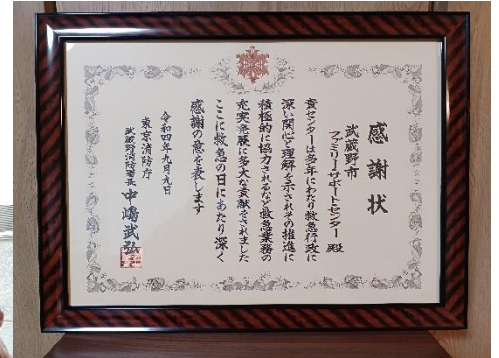 感謝状
武蔵野市
ファミリーサポートセンター 殿
貴センターは多年にわたり救急行政に
深い関心と理解を示されその推進に
積極的に協力されるなど救急業務の
充実発展に多大な貢献をされました
ここに救急の日にあたり深く
感謝の意を表します
令和四年九月九日
東京消防庁
武蔵野消防署長 中嶋武弘